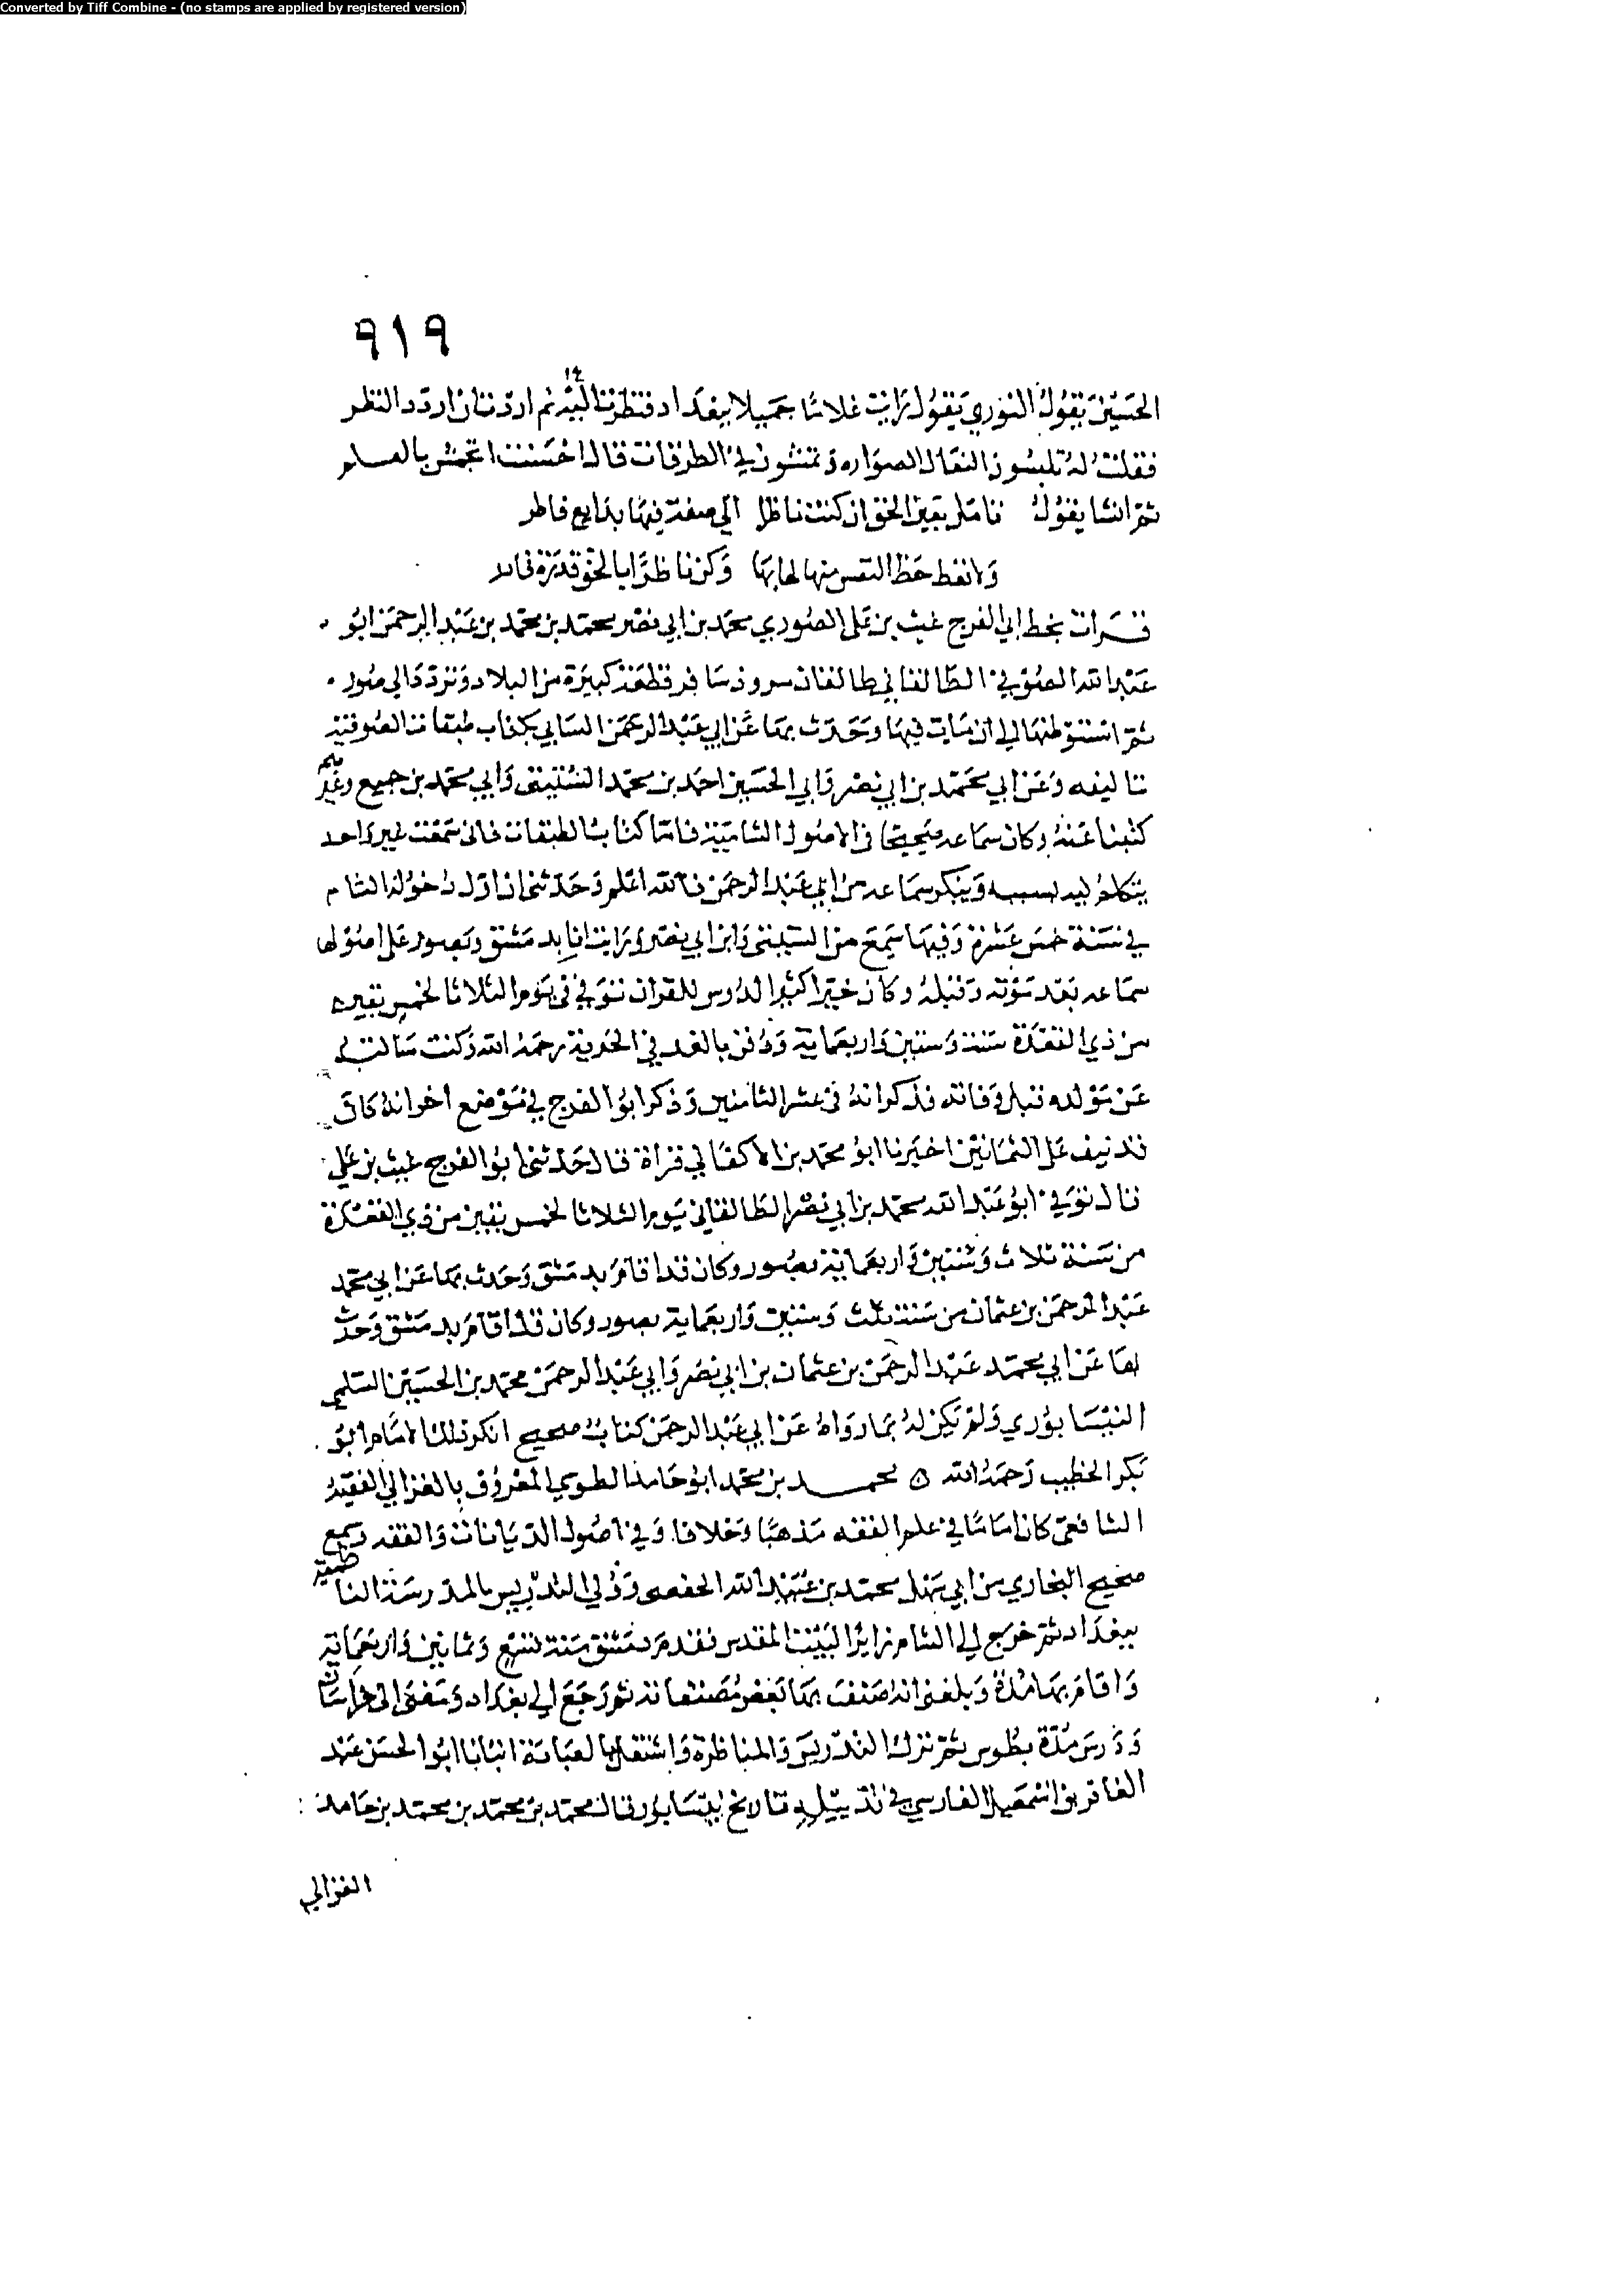 Converted by Tiff Combine - (no stamps are applied by registered version)
٩١٩
الحسين يقول النوري يقول رايت غلاما جميلا ببغداد فنظرت اليه ثم اردت ان اردد النظر
فقلت له تلبسون النعال الصراره وتمشون في الطرقات قال احسنت اتجمش بالعلم
ثم انشا يقول تامل بعين الحق ان كنت ناظرا الى صفة فيها بدايع فاطر
ولا تعط حظ النفس منها لما بها وكن ناظرا بالحق قدرة قادر
قرات بخط ابي الفرج غيث بن علي الصوري محمد بن ابي نصر محمد بن محمد بن عبد الرحمن ابو
عبد الله الصوفي الطالقاني طالقان مرو ذ سافر قطعة كبيرة من البلاد وتردد الى صور
ثم استوطنها الى ان مات فيها وحدث بها عن ابي عبد الرحمن السلمي بكتاب طبقات الصوفية
تاليفه وعن ابي محمد بن ابي نصر وابي الحسين احمد بن محمد وابي محمد بن جميع وغيرهم
كتبنا عنه وكان سماعه صحيحا في الاصول الشامية فاما كتاب الطبقات فاني سمعت غير واحد
يتكلم فيه بسببه وينكر سماعه من ابي عبد الرحمن فالله اعلم وحدثني ان اول دخوله الشام
في سنة خمس عشرة وفيها سمع من وابن ابي نصر ورايت انا بدمشق وبصور على اصولها
سماعه بعد موته وقبله وكان خيرا كثير الدروس للقران توفي في يوم الثلاثا لخمس بقين
من ذي القعدة سنة وستين واربعماية ودفن بالغد في رحمه الله وكنت سالته
عن مولده قبل وفاته فذكر انه في عشر الثامنين وذكر ابو الفرج في موضع اخر انه كان
قد نيف على الثمانين اخبرنا ابو محمد بن الاكفاني قراة قال حدثني ابو الفرج غيث بن علي
قال توفي ابو عبد الله محمد بن ابي نصر الطالقاني يوم الثلاثا لخمس بقين من ذي القعدة
من سنة ثلاث وستين واربعماية بصور وكان قد اقام بدمشق وحدث بها عن ابي محمد
عبد الرحمن بن عثمان من سنة ثلث وستين واربعماية بصور وكان قد اقام بدمشق وحدث
بها عن ابي محمد عبد الرحمن بن عثمان بن ابي نصر وابي عبد الرحمن محمد بن الحسين السلمي
النيسابوري ولم يكن له بما رواه عن ابي عبد الرحمن كتاب صحيح انكر ذلك الامام ابو
بكر الخطيب رحمه الله ٥ محمد بن محمد ابو حامد الطوسي المعروف بالغزالي الفقيه
الشافعي كان اماما في علم الفقه مذهبا وخلافا وفي اصول الديانات والفقه وسمع
صحيح البخاري من ابي سهل محمد بن عبيد الله الحفصي وولي التدريس بالمدرسة النظامية
ببغداد ثم خرج الى الشام زايرا لبيت المقدس فقدم دمشق سنة تسع وثمانين واربعماية
واقام بها مدة وبلغني انه صنف بها بعض مصنفاته ثم رجع الى بغداد ومضى الى خراسان
ودرس مدة بطوس ثم ترك التدريس والمناظرة واشتغل بالعبادة انبانا ابو الحسن عبد
الغافر بن اسمعيل الفارسي في تذييله تاريخ نيسابور قال محمد بن محمد بن محمد بن حامد
الغزالي